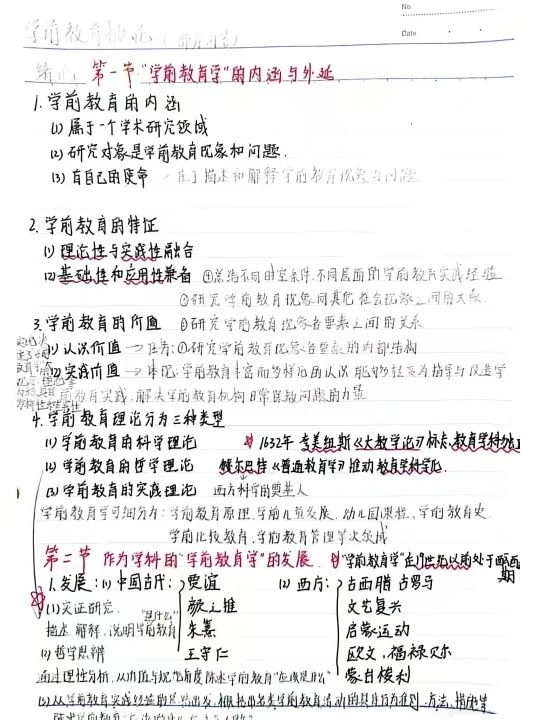 No.
Date
学前教育概论（
绪论 第一节 "学前教育学"的内涵与外延
1. 学前教育的内涵
(1) 属于一个学术研究领域
(2) 研究对象是学前教育现象和问题.
(3) 有自己的使命 — 在于描述和解释学前教育现象与问题
2. 学前教育的特征
(1) 理论性与实践性融合
(2) 基础性和应用性兼备 ①总结不同时空条件、不同层面的学前教育实践经验
②研究学前教育现象同其他社会现象之间的关系.
3. 学前教育的价值 ③研究学前教育现象各要素之间的关系
(1) 认识价值 → 任务: ①研究学前教育现象各要素的内部结构
(2) 实践价值 → 体现: 学前教育丰富而多样化的认识能够转变为指导与改造学
前教育实践、解决学前教育机构日常保教问题的力量
4. 学前教育理论分为三种类型
(1) 学前教育的科学理论 1632年 夸美纽斯《大教学论》标志教育学科独立
(2) 学前教育的哲学理论 赫尔巴特《普通教育学》推动教育学科学化.
(3) 学前教育的实践理论 西方科学的奠基人
学前教育学可细分为: 学前教育原理、学前儿童发展、幼儿园课程、学前教育史、
学前比较教育、学前教育管理等次领域
第二节 作为学科的"学前教育学"的发展. "学前教育学"在19世纪以前处于
期
1. 发展: (1) 中国古代: 贾谊 (2) 西方: 古西腊 古罗马
(1) 实证研究. "是什么" 颜之推 文艺复兴
描述、解释、说明学前教育 朱熹 启蒙运动
(2) 哲学思辨 王守仁 欧文、福禄贝尔
通过理性分析, 从价值与规范角度陈述学前教育"应该是什么" 蒙台梭利
(3) 从学前教育实践经验的总结出发, 根据出各类学前教育活动的具体行为准则、方法、措施等